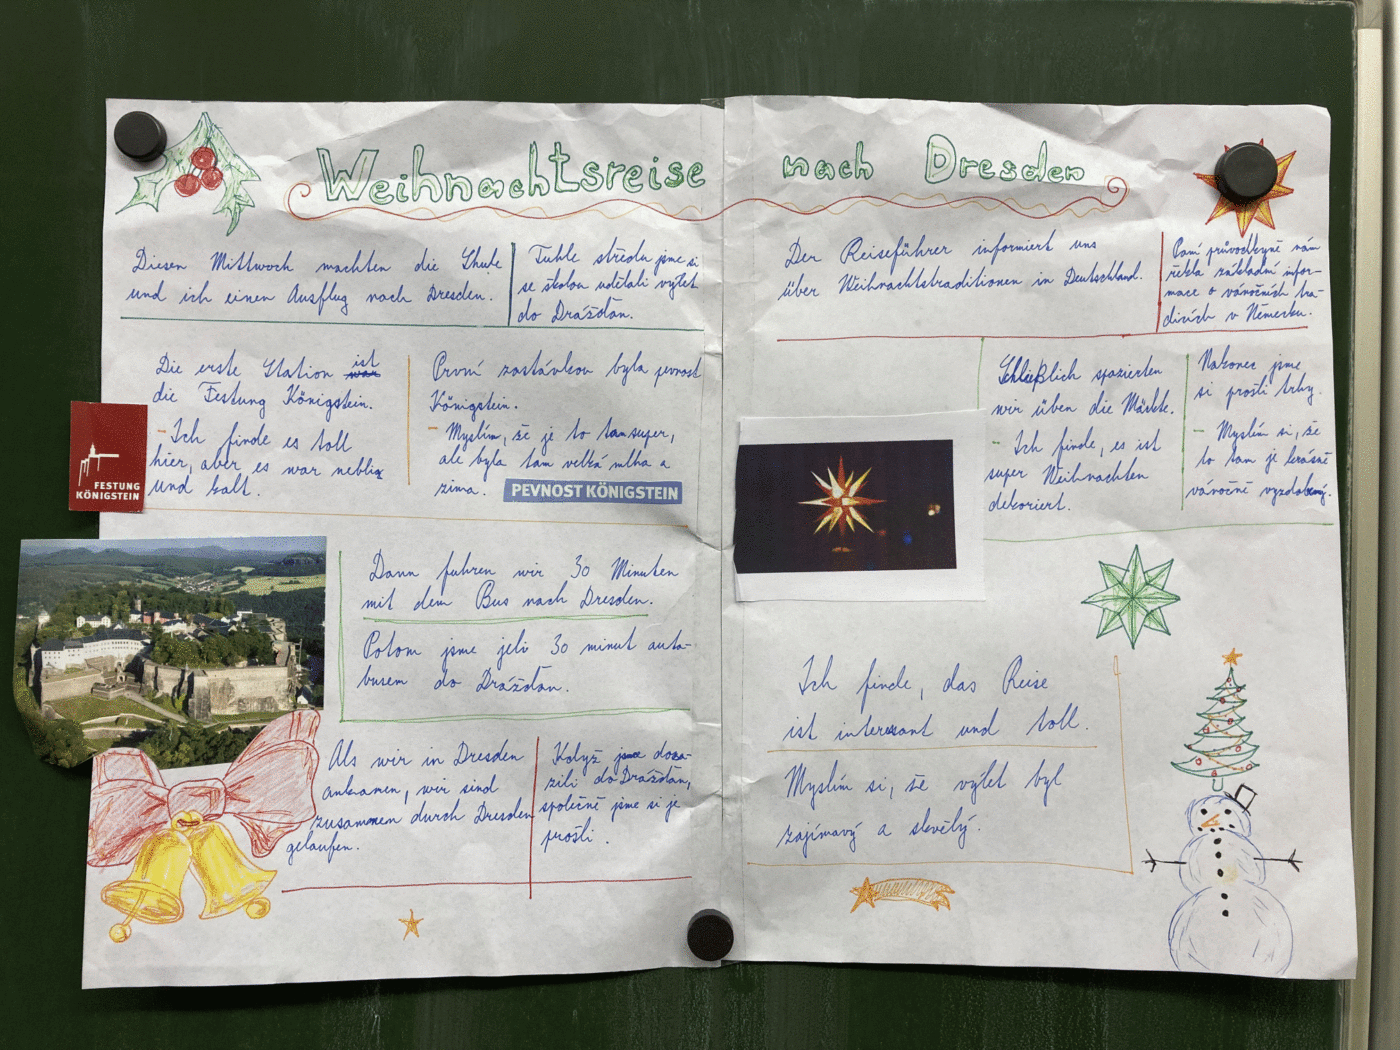 Weihnachtsreise nach Dresden
Diesen Mittwoch machten die Schule
und ich einen Ausflug nach Dresden.
Tuhle středu jsme si
se školou udělali výlet
do Drážďan.
Die erste Station ist
war
die Festung Königstein.
- Ich finde es toll
hier, aber es war neblig
und kalt.
První zastávkou byla pevnost
Königstein.
- Myslím, že je to tam super,
ale byla tam velká mlha a
zima.
PEVNOST KÖNIGSTEIN
FESTUNG
KÖNIGSTEIN
Dann fuhren wir 30 Minuten
mit dem Bus nach Dresden.
Potom jsme jeli 30 minut auto-
busem do Drážďan.
Als wir in Dresden
ankamen, wir sind
zusammen durch Dresden
gelaufen.
Když jsme dora-
zili do Drážďan,
společně jsme si je
prošli.
Der Reiseführer informiert uns
über Weihnachtstraditionen in Deutschland.
Paní průvodkyně nám
řekla základní infor-
mace o vánočních tra-
dicích v Německu.
Schließlich spazierten
wir üben die Märkte.
- Ich finde, es ist
super Weihnachten
dekoriert.
Nakonec jsme
si prošli trhy.
- Myslím si, že
to tam je krásně
vánočně vyzdobený.
Ich finde, das Reise
ist interesant und toll.
Myslím si, že výlet byl
zajímavý a skvělý.